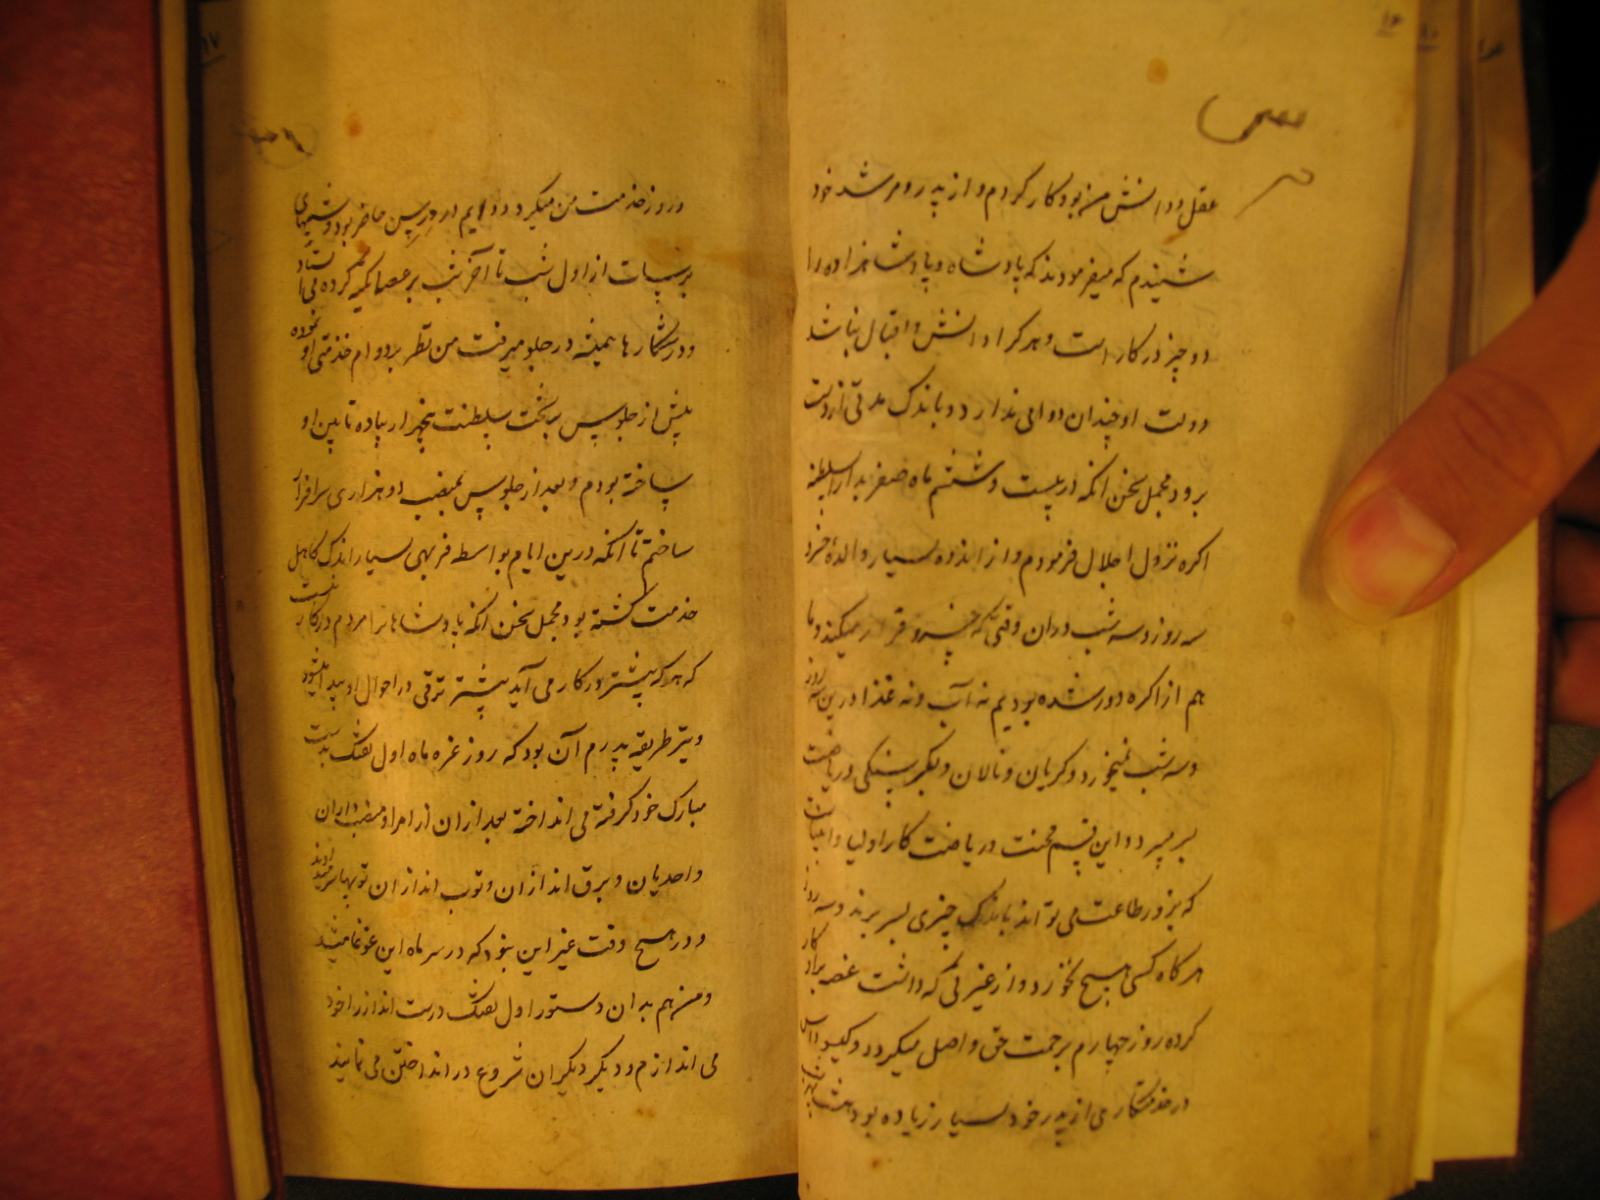 عقل و دانش من بود کار کردم و از پدر و مرشد خود
شنیدم که میفرمودند که پادشاه و پادشاهزاده را
دو چیز در کار است و هر کرا دانش و اقبال نباشد
دولت او چندان دوامی ندارد و باندک مدتی از دست
برود مجمل سخن آنکه در بیست و ششم ماه صفر بدار السلطنه
اکره نزول اجلال فرمودم و از اندوه بسیار والدهٔ خسرو
سه روز و سه شب در آن وقتی که خسرو فرار میکند و ما
هم از اکره دور شده بودیم نه آب و نه غذا درین سه روز
و سه شب نمیخورد و کریان و نالان و بکرسنکی و ریاضت
بسر میبرد و این قسم محنت و ریاضت کار اولیا و انبیاست
که بزور طاعت می تواند باندک چیزی بسر برند و سه روز
هرکاه کسی هیچ نخورد و از غیرتی که داشت غصه برادر کار
کرده روز چهارم برحمت حق واصل میکردد و کیسو داس
در خدمتکاری از پدر خود بسیار زیاده بود
و روز خدمت من میکرد و دایم در درس حاضر بود و شبهای
برسات از اول شب تا آخر شب بر عصا تکیه کرده می استاد
و در شکارها همیشه در جلو میرفت من نظر بدوام خدمتی او نموده
پیش از جلوس بتخت سلطنت پنجهزار پیاده تابین او
ساخته بودم و بعد از جلوس بمنصب دو هزاری سرافراز
ساختم تا آنکه درین ایام بواسطه فربهی بسیار اندک کاهل
خدمت کشته بود مجمل سخن آنکه پادشاهانرا مردم در کار است
که هر که بیشتر در کار می آید بیشتر ترقی در احوال او پیدا میشود
و نیز طریقه پدرم آن بود که روز غره ماه اول تفنک بدست
مبارک خود کرفته می انداخته بعد ازان از امرا و منصبداران
و احدیان و برق اندازان و توب اندازان توبها سر میدادند
و در هیچ وقت غیر این نبود که در سر ماه این غوغا میشد
و من هم بدان دستور اول تفنک درست انداز را خود
می اندازم و دیکر دیکران شروع در انداختن می نمایند